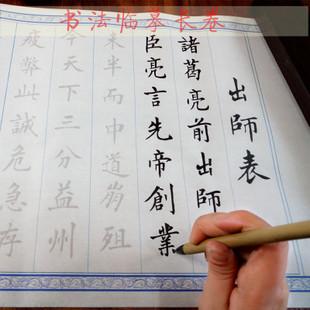 书法临摹长卷
出師表
諸葛亮前出師
臣亮言先帝創業
未半而中道崩殂
今天下三分益州
疲弊此誠危急存